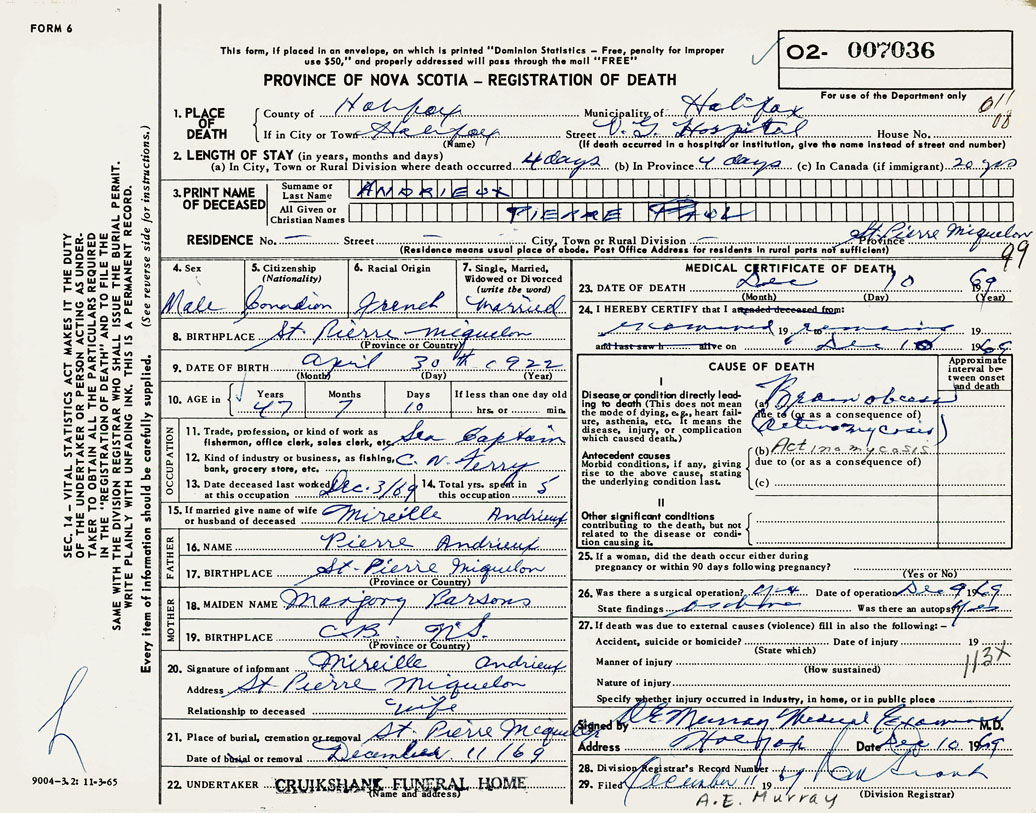 FORM 6
This form, if placed in an envelope, on which is printed "Dominion Statistics – Free, penalty for improper
use $50," and properly addressed will pass through the mail "FREE"
O2- 007036
PROVINCE OF NOVA SCOTIA – REGISTRATION OF DEATH
For use of the Department only
011
08
1. PLACE OF DEATH
County of Halifax Municipality of Halifax
If in City or Town Halifax Street V. G. Hospital House No.
(Name) (If death occurred in a hospital or institution, give the name instead of street and number)
2. LENGTH OF STAY (in years, months and days)
(a) In City, Town or Rural Division where death occurred 4 days (b) In Province 4 days (c) In Canada (if immigrant) 20 yrs
3. PRINT NAME OF DECEASED
Surname or Last Name ANDRIEUX
All Given or Christian Names PIERRE PAUL
RESIDENCE No. — Street — City, Town or Rural Division — Province St. Pierre Miquelon
(Residence means usual place of abode. Post Office Address for residents in rural parts not sufficient)
99
4. Sex 5. Citizenship (Nationality) 6. Racial Origin 7. Single, Married, Widowed or Divorced (write the word)
Male Canadian French Married
8. BIRTHPLACE St Pierre Miquelon
(Province or Country)
9. DATE OF BIRTH April 30th 1922
(Month) (Day) (Year)
10. AGE in Years Months Days If less than one day old
47 7 10 hrs. or min.
OCCUPATION
11. Trade, profession, or kind of work as fisherman, office clerk, sales clerk, etc. Sea Captain
12. Kind of industry or business, as fishing, bank, grocery store, etc. C. N. Ferry
13. Date deceased last worked at this occupation Dec. 3/69 14. Total yrs. spent in this occupation 5
15. If married give name of wife or husband of deceased Mireille Andrieux
FATHER
16. NAME Pierre Andrieux
17. BIRTHPLACE St-Pierre Miquelon
(Province or Country)
MOTHER
18. MAIDEN NAME Margory Parsons
19. BIRTHPLACE C.B. N.S.
(Province or Country)
20. Signature of informant Mireille Andrieux
Address St Pierre Miquelon
Relationship to deceased wife
21. Place of burial, cremation or removal St. Pierre Miquelon
Date of burial or removal December 11/69
22. UNDERTAKER CRUIKSHANK FUNERAL HOME
(Name and address)
MEDICAL CERTIFICATE OF DEATH
23. DATE OF DEATH Dec 10 1969
(Month) (Day) (Year)
24. I HEREBY CERTIFY that I attended deceased from:
examined 19 remains 19
and last saw h alive on Dec 10 1969
CAUSE OF DEATH
Approximate interval between onset and death
I
Disease or condition directly leading to death (This does not mean the mode of dying, e.g., heart failure, asthenia, etc. It means the disease, injury, or complication which caused death.)
(a) Brain abscess
due to (or as a consequence of)
(Actinomycosis)
Antecedent causes
Morbid conditions, if any, giving rise to the above cause, stating the underlying condition last.
(b) Actinomycasis
due to (or as a consequence of)
(c)
II
Other significant conditions
contributing to the death, but not related to the disease or condition causing it.
25. If a woman, did the death occur either during
pregnancy or within 90 days following pregnancy?
(Yes or No)
26. Was there a surgical operation? yes Date of operation Dec 9 1969
State findings as above Was there an autopsy? yes
27. If death was due to external causes (violence) fill in also the following: –
Accident, suicide or homicide? Date of injury 19
(State which)
Manner of injury
(How sustained)
113X
Nature of injury
Specify whether injury occurred in industry, in home, or in public place
Signed by A E Murray Medical Examiner M.D.
Address Halifax Date Dec 10 1969
28. Division Registrar's Record Number
29. Filed December 11 19
(Division Registrar)
A.E. Murray
SEC. 14 – VITAL STATISTICS ACT MAKES IT THE DUTY
OF THE UNDERTAKER OR PERSON ACTING AS UNDER-
TAKER TO OBTAIN ALL THE PARTICULARS REQUIRED
IN THE "REGISTRATION OF DEATH" AND TO FILE THE
SAME WITH THE DIVISION REGISTRAR WHO SHALL ISSUE THE BURIAL PERMIT.
WRITE PLAINLY WITH UNFADING INK. THIS IS A PERMANENT RECORD.
Every item of information should be carefully supplied. (See reverse side for instructions.)
9004-3.2: 11-3-65